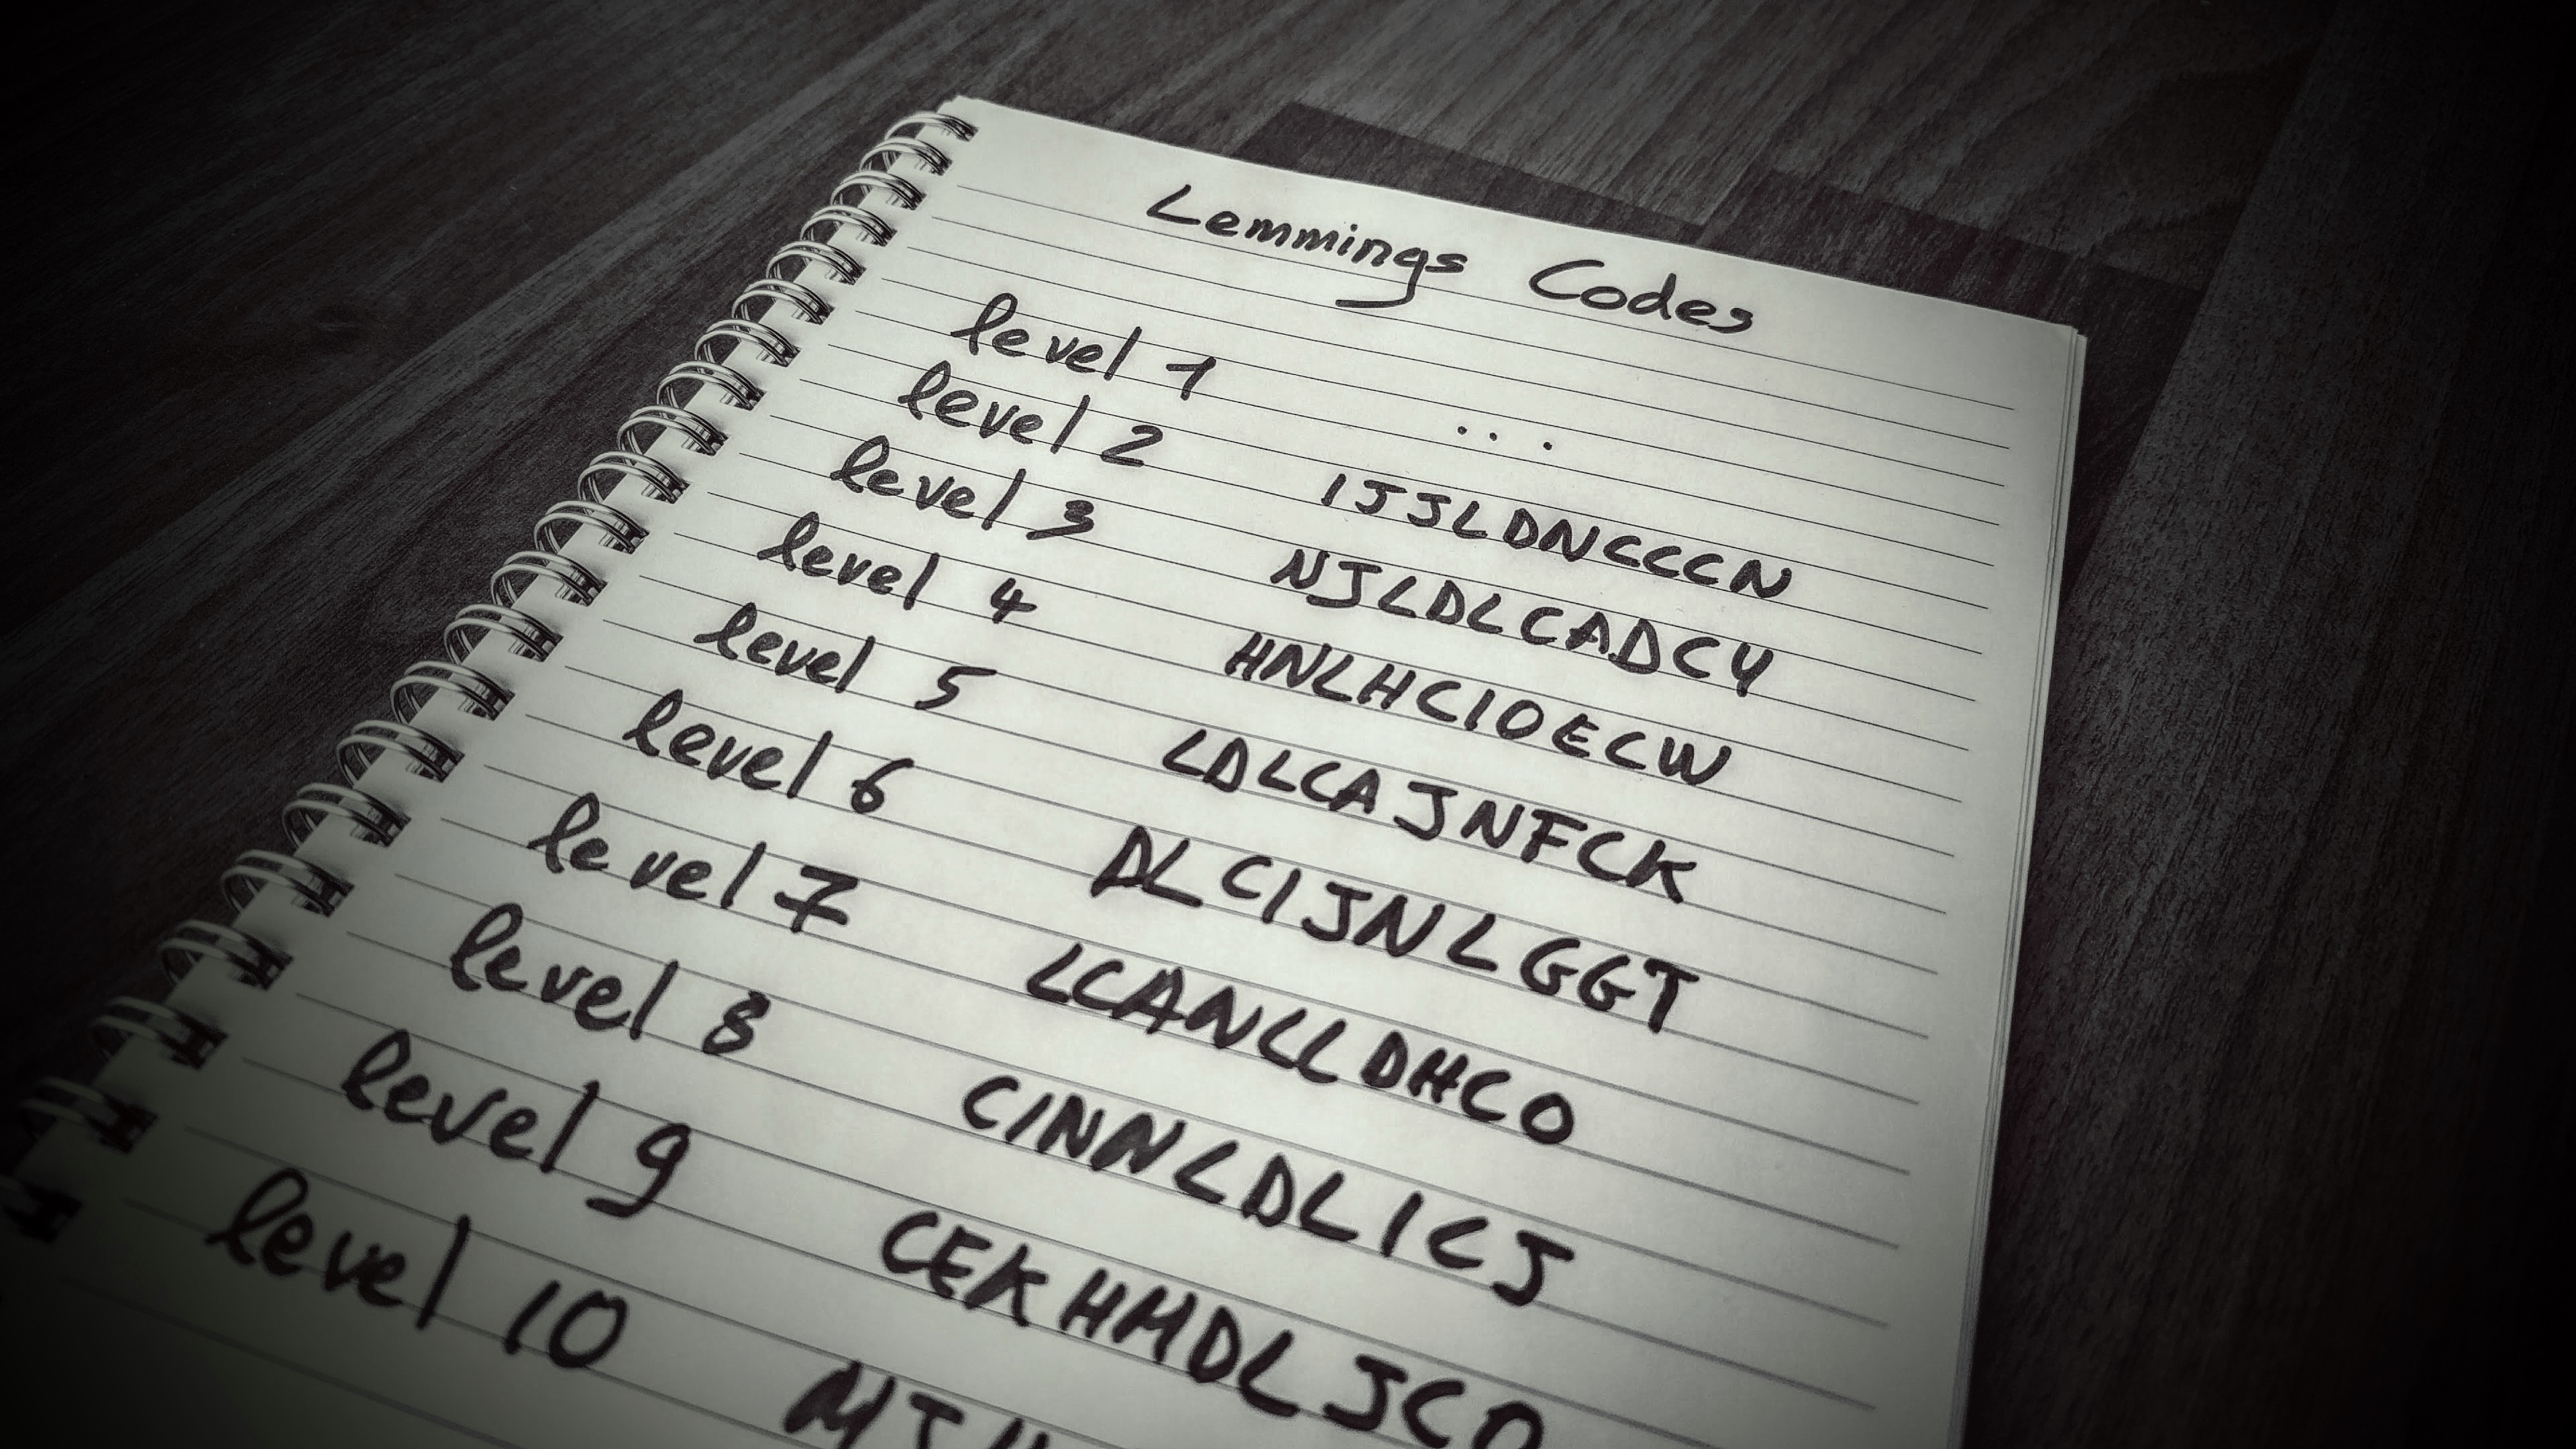 Lemmings Codes
level 1 ...
level 2 IJJLDNCCCN
level 3 NJLDLCADCY
level 4 HNLHCIOECW
level 5 LDLCAJNFCK
level 6 DLCIJNLGGT
level 7 LCANLLDHCO
level 8 CINNLDLICJ
level 9 CEKHMDLJCO
level 10